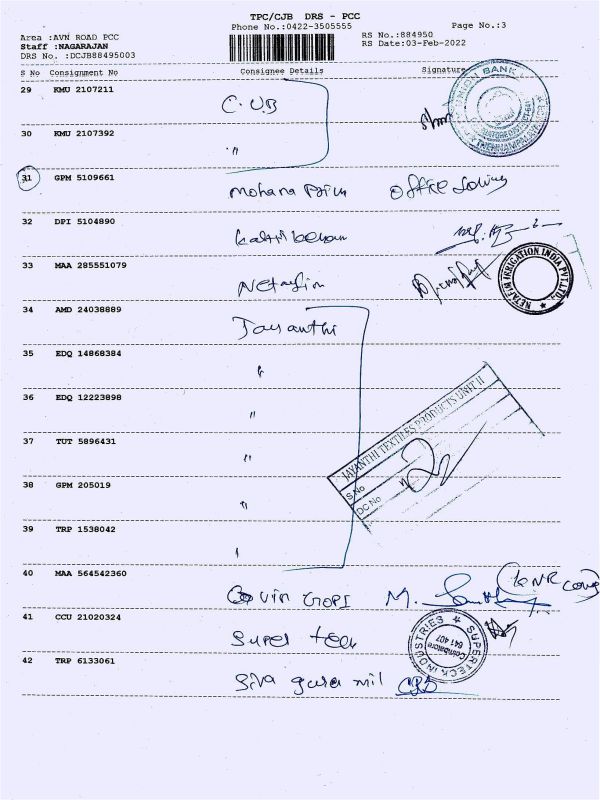 TPC/CJB DRS - PCC
Phone No.:0422-3505555
Page No.:3
Area :AVN ROAD PCC
Staff :NAGARAJAN
DRS No. :DCJB88495003
RS No.:884950
RS Date:03-Feb-2022
S No Consignment No Consignee Details Signature
29 KMU 2107211 C.U.B
UNION BANK
30 KMU 2107392 "
31 GPM 5109661 Mohana Office
32 DPI 5104890
33 MAA 285551079 Netafim
NETAFIM IRRIGATION INDIA PVT.LTD.,
34 AMD 24038889 Jayanthi
35 EDQ 14868384 "
36 EDQ 12223898 "
37 TUT 5896431 "
JAYANTHI TEXTILES PRODUCTS UNIT II
S.No
DC No
38 GPM 205019 "
39 TRP 1538042
40 MAA 564542360 GOPI M.
41 CCU 21020324 Super teck
SUPERTECK INDUSTRIES
Coimbatore
641 407
42 TRP 6133061 Siva mil